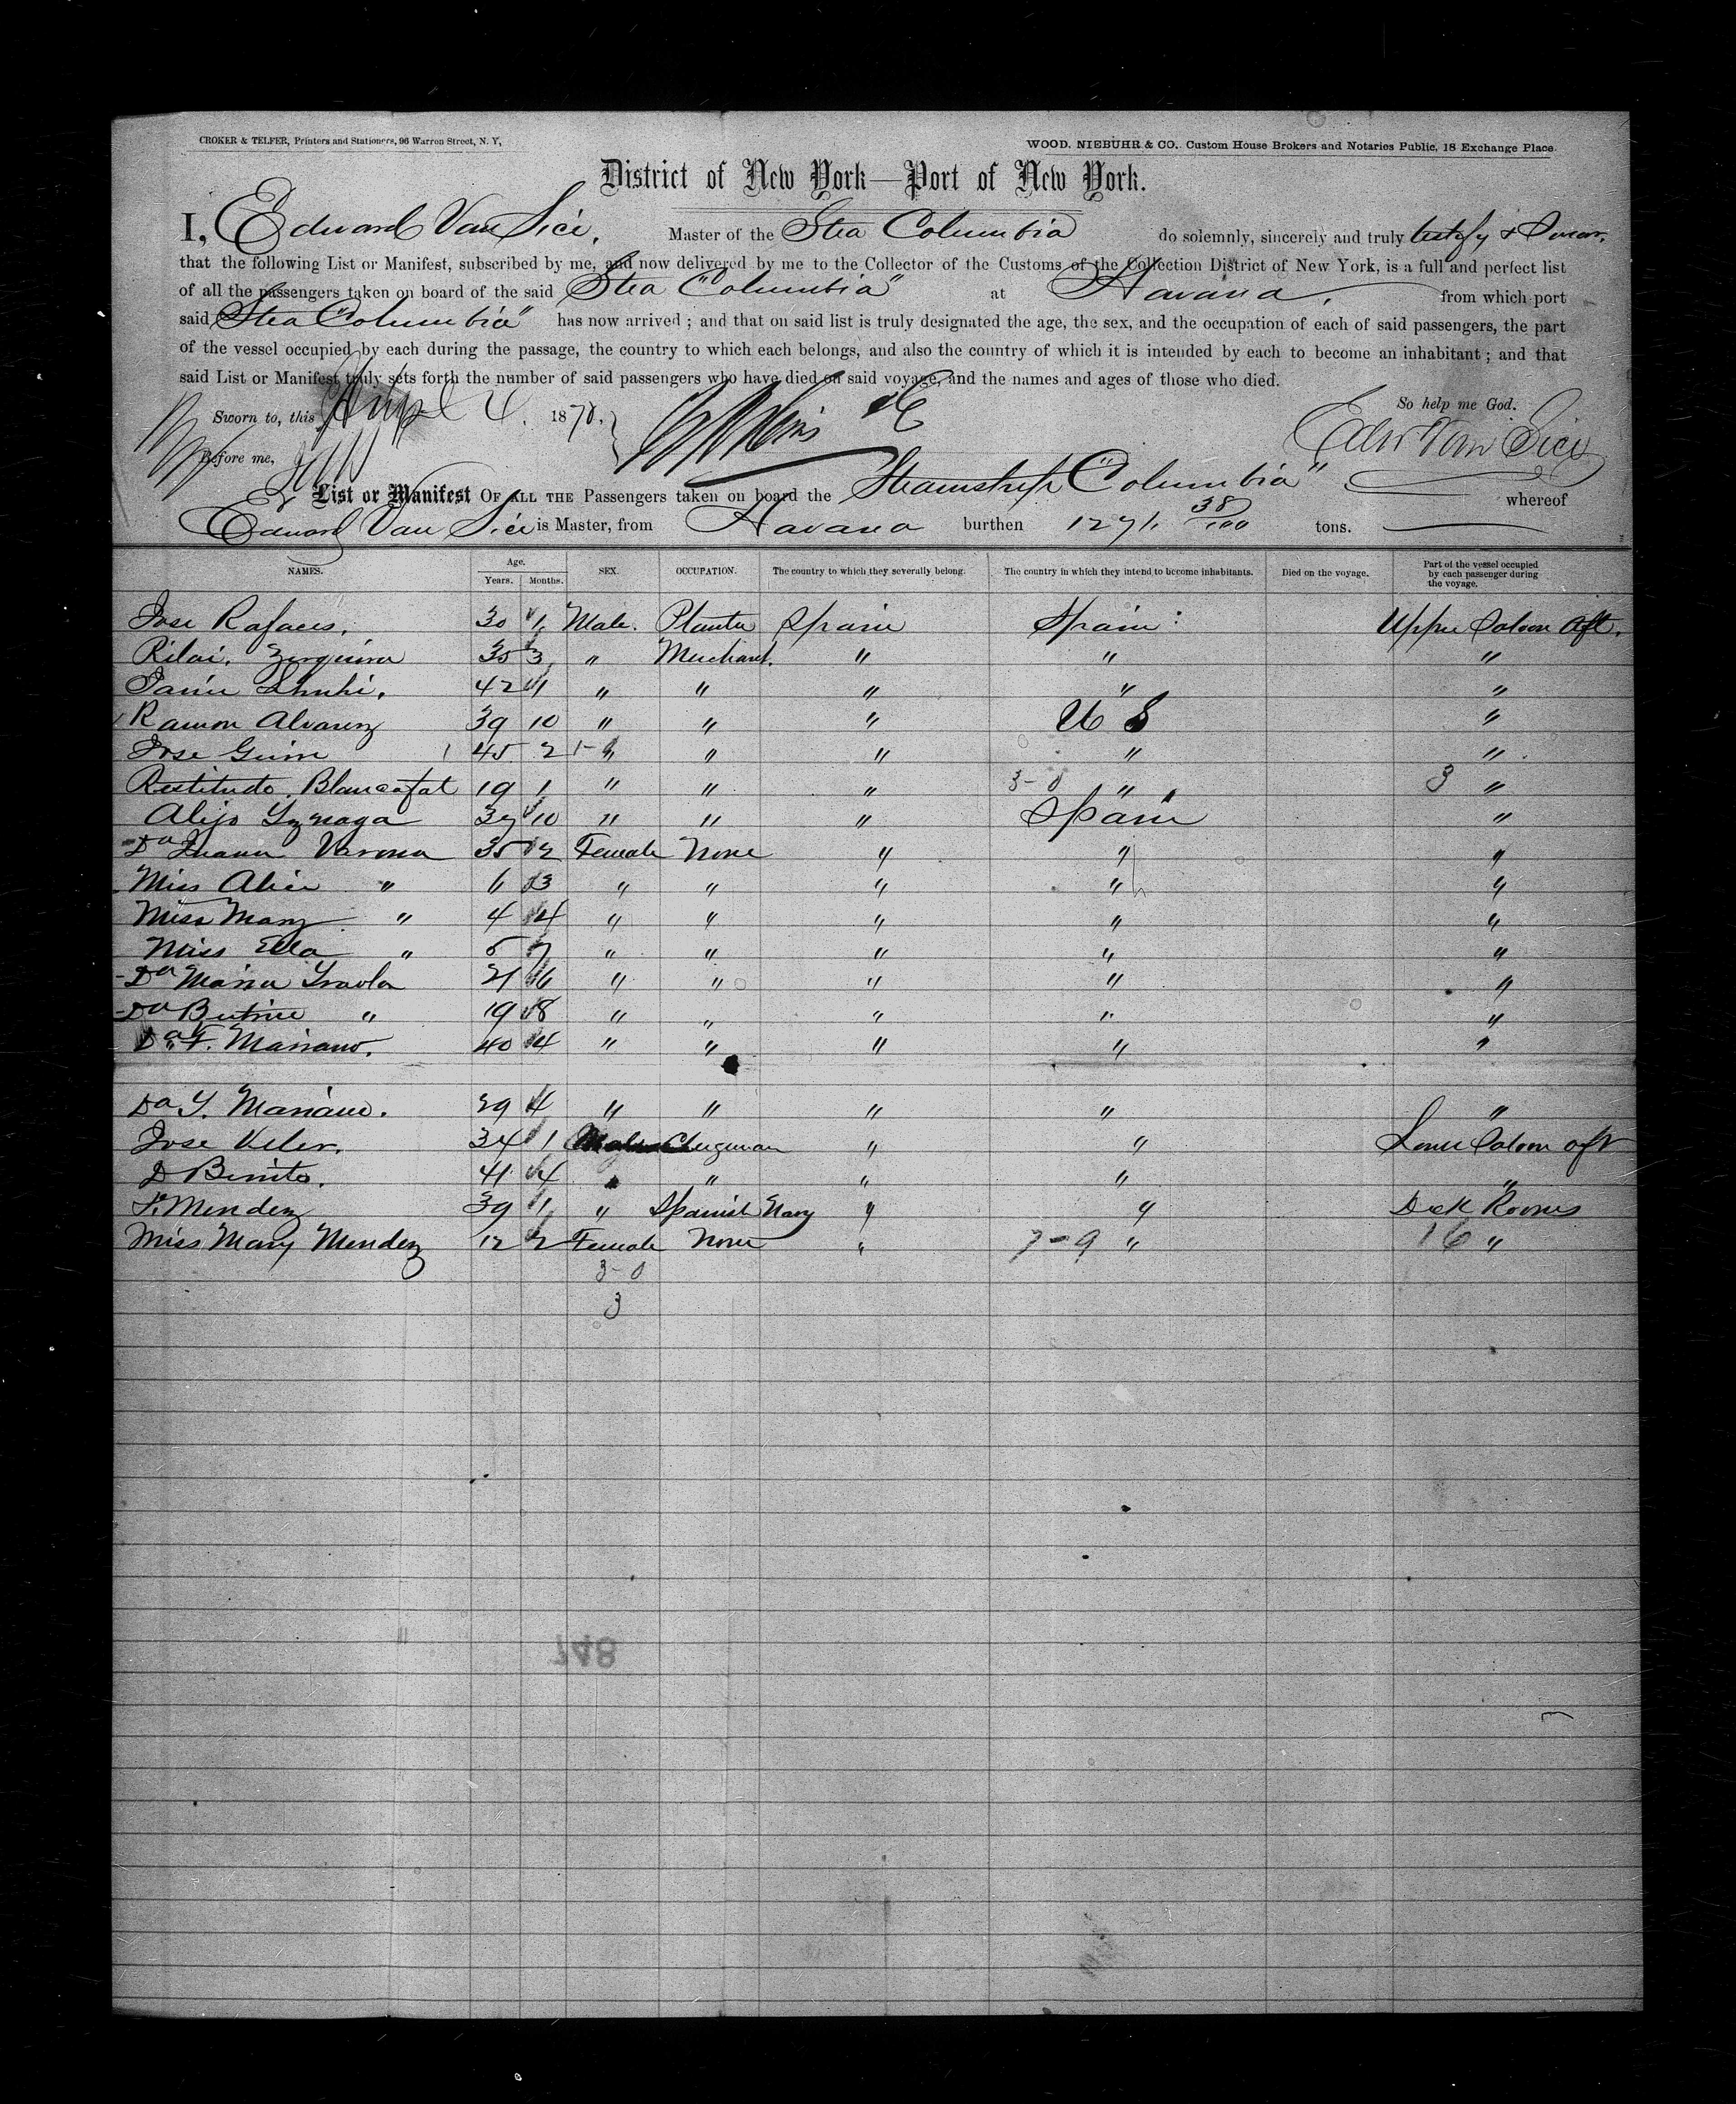 CROKER & TELFER, Printers and Stationers, 96 Warren Street, N. Y,
WOOD. NIEBUHR & CO. Custom House Brokers and Notaries Public, 18 Exchange Place.
District of New York—Port of New York.
I, Edward Van Sice, Master of the Stea Columbia do solemnly, sincerely and truly testify & swear,
that the following List or Manifest, subscribed by me, and now delivered by me to the Collector of the Customs of the Collection District of New York, is a full and perfect list
of all the passengers taken on board of the said Stea "Columbia" at Havana, from which port
said Stea "Columbia" has now arrived ; and that on said list is truly designated the age, the sex, and the occupation of each of said passengers, the part
of the vessel occupied by each during the passage, the country to which each belongs, and also the country of which it is intended by each to become an inhabitant ; and that
said List or Manifest truly sets forth the number of said passengers who have died on said voyage, and the names and ages of those who died.
So help me God.
Sworn to, this 4. 1870.
Edw Van Sice
Before me,
List or Manifest OF ALL THE Passengers taken on board the Steamship "Columbia" whereof
Edward Van Sice is Master, from Havana burthen 1271. 38/100 tons.
NAMES. Age. Years. Months. SEX. OCCUPATION. The country to which they severally belong. The country in which they intend to become inhabitants. Died on the voyage. Part of the vessel occupied by each passenger during the voyage.
Jose 30 1 Male. Planter Spain Spain Upper Saloon Aft.
35 3 " Merchant. " " "
42 1 " " " " "
Ramon Alvarez 39 10 " " " U S "
Jose 1 45 2 1- " " " " "
Restitudo. Blancafat 19 1 " " " 3-0 " 3 "
Alejo Yznaga 37 10 " " " Spain "
Da Juana Varona 35 2 Female None " " "
Miss Alice " 6 3 " " " " "
Miss Mary " 4 4 " " " " "
Miss Ella " 5 7 " " " " "
Da Maria 21 6 " " " " "
Da " 19 8 " " " " "
Da F. Mariano. 40 4 " " " " "
Da Y. Mariano. 29 4 " " " " "
Jose 34 1 Male Clergyman " " Lower Saloon aft
D Benito. 41 4 " " " " "
F. Mendez 39 1 " Spanish Navy " " Deck Rooms
Miss Mary Mendez 12 2 Female None " 7-9 " 16 "
3-0
3
748